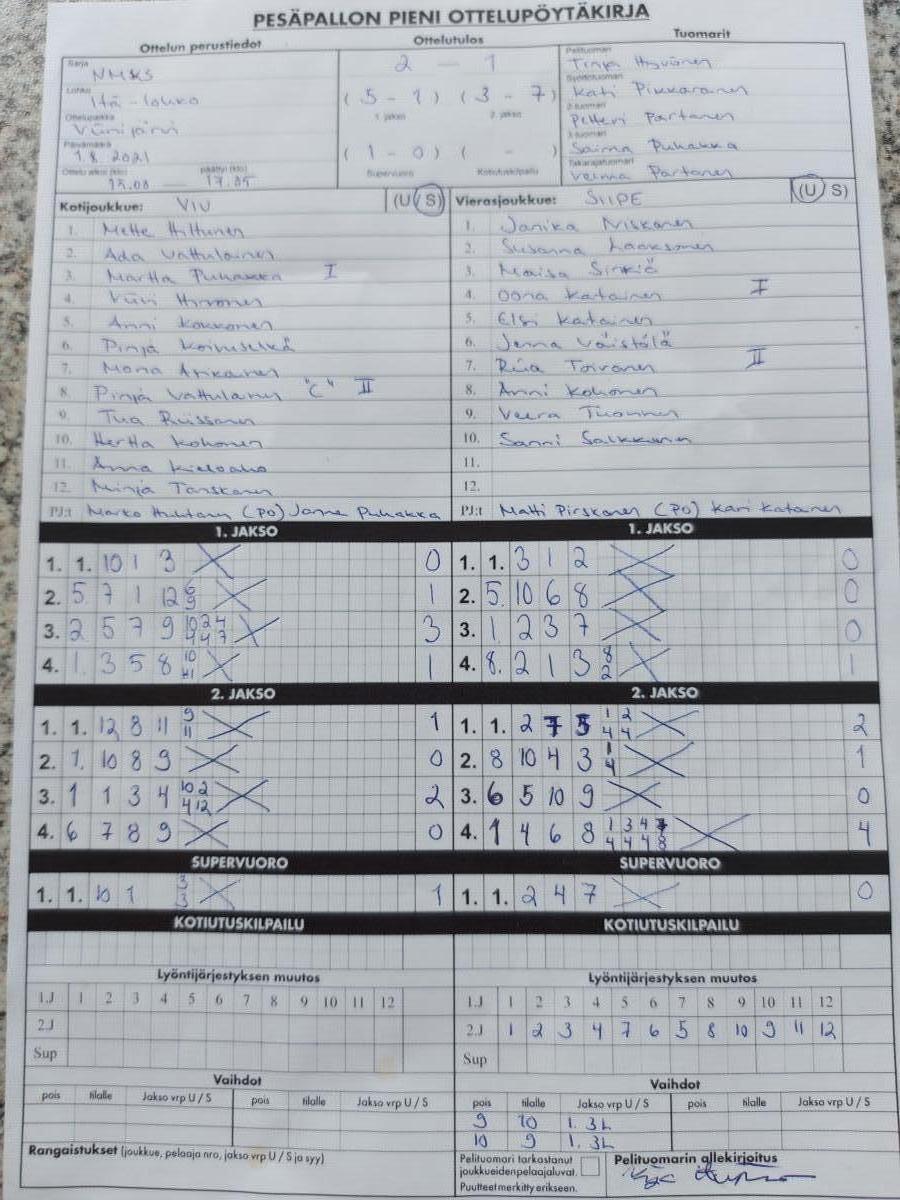 PESÄPALLON PIENI OTTELUPÖYTÄKIRJA
Ottelun perustiedot Ottelutulos Tuomarit
Sarja NMKS
Lohko Itä-lohko
Ottelupaikka Viinijärvi
Päivämäärä 1.8.2021
Ottelu alkoi (klo) 15.00 — päättyi (klo) 17.05
2 — 1
(5 - 1) (3 - 7)
1. jakso 2. jakso
(1 - 0) ( - )
Supervuoro Kotiutuskilpailu
Pelituomari Tinja Hyvönen
Syöttötuomari Kati Pikkarainen
2-tuomari Petteri Partanen
3-tuomari Saima Puhakka
Takarajatuomari Veinna Partanen
Kotijoukkue: ViU (U/S) Vierasjoukkue: SiiPE (U/S)
1. Mette Hiltunen 1. Janika Niskanen
2. Ada Vattulainen 2. Susanna Laaksonen
3. Martta Puhakka I 3. Maisa Sinkiö
4. Viivi Hyvönen 4. Oona Katainen I
5. Anni Kokkonen 5. Elsi Katainen
6. Pinja Koivuselkä 6. Jenna Väistölä
7. Mona Asikainen 7. Riia Toivanen II
8. Pinja Vattulainen "C" II 8. Anni Kohonen
9. Tua Ruissanen 9. Veera Tuononen
10. Hertta Kohonen 10. Sanni Salkkunen
11. Anna Kieloaho 11.
12. Minja Tanskanen 12.
PJ:t Marko Huhtanen (PO) Janne Puhakka PJ:t Matti Pirskanen (PO) Kari Katainen
1. JAKSO 1. JAKSO
1. 1. 10 1 3 0 1. 1. 3 1 2 0
2. 5 7 1 12 6 9 1 2. 5. 10 6 8 0
3. 2 5 7 9 10 2 4 4 4 7 3 3. 1. 2 3 7 0
4. 1. 3 5 8 10 11 1 4. 8. 2 1 3 8 2 1
2. JAKSO 2. JAKSO
1. 1. 12 8 11 9 11 1 1. 1. 2 7 5 1 2 4 4 2
2. 7. 10 8 9 0 2. 8 10 4 3 1 4 1
3. 1 1 3 4 10 2 4 12 2 3. 6 5 10 9 0
4. 6 7 8 9 0 4. 1 4 6 8 1 3 4 7 4 4 4 8 4
SUPERVUORO SUPERVUORO
1. 1. 10 1 3 3 1 1. 1. 2 4 7 0
KOTIUTUSKILPAILU KOTIUTUSKILPAILU
Lyöntijärjestyksen muutos Lyöntijärjestyksen muutos
1.J 1 2 3 4 5 6 7 8 9 10 11 12 1.J 1 2 3 4 5 6 7 8 9 10 11 12
2.J 2.J 1 2 3 4 7 6 5 8 10 9 11 12
Sup Sup
Vaihdot Vaihdot
pois tilalle Jakso vrp U / S pois tilalle Jakso vrp U / S pois tilalle Jakso vrp U / S pois tilalle Jakso vrp U / S
9 10 1. 3L
10 9 1. 3L
Rangaistukset (joukkue, pelaaja nro, jakso vrp U / S ja syy)
Pelituomari tarkastanut
joukkueidenpelaajaluvat.
Puutteet merkitty erikseen.
Pelituomarin allekirjoitus